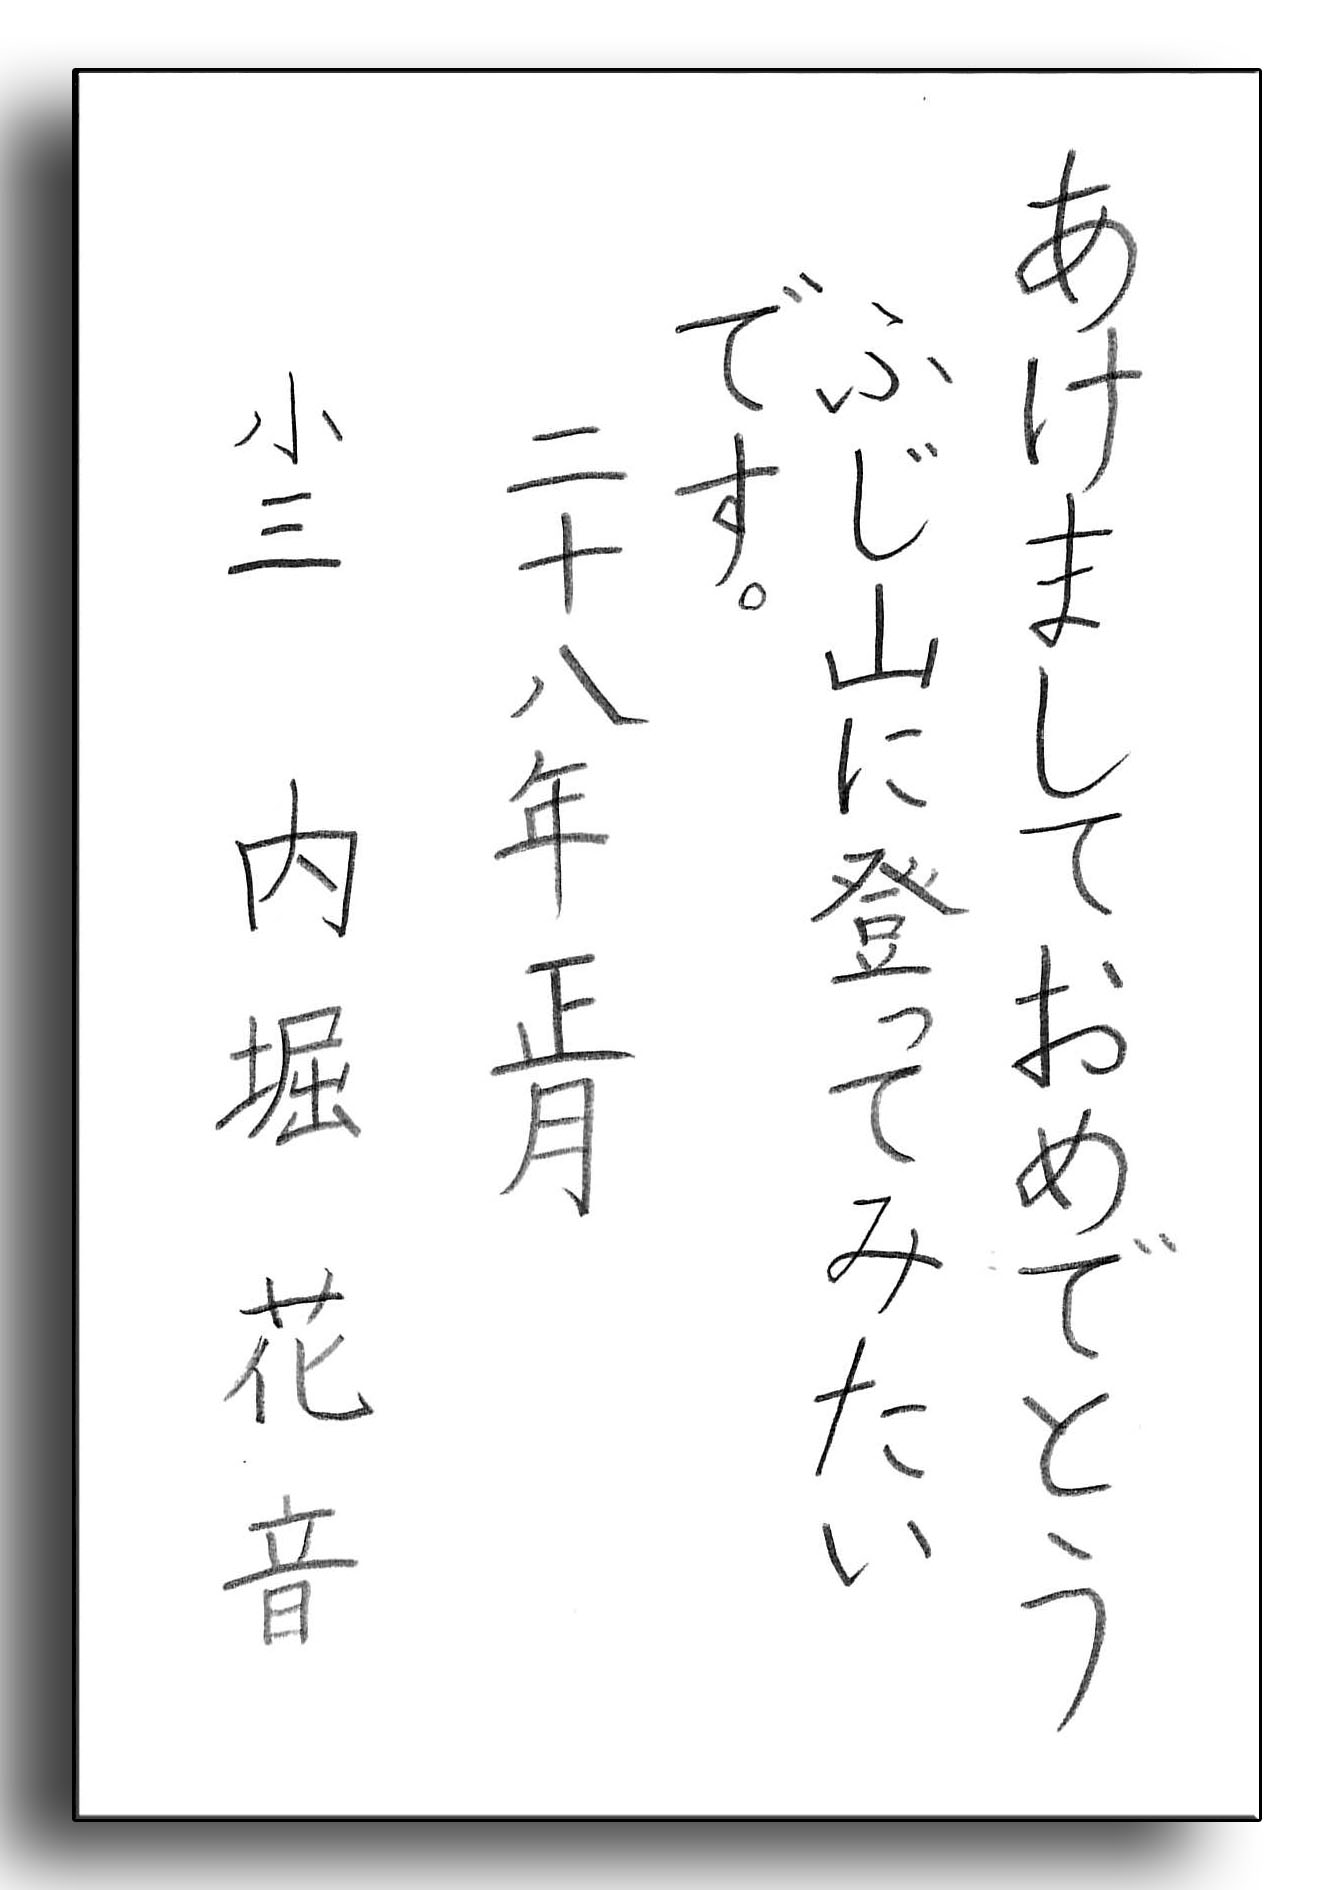 あけましておめでとう
ふじ山に登ってみたい
です。
二十八年正月
小三 内堀 花音